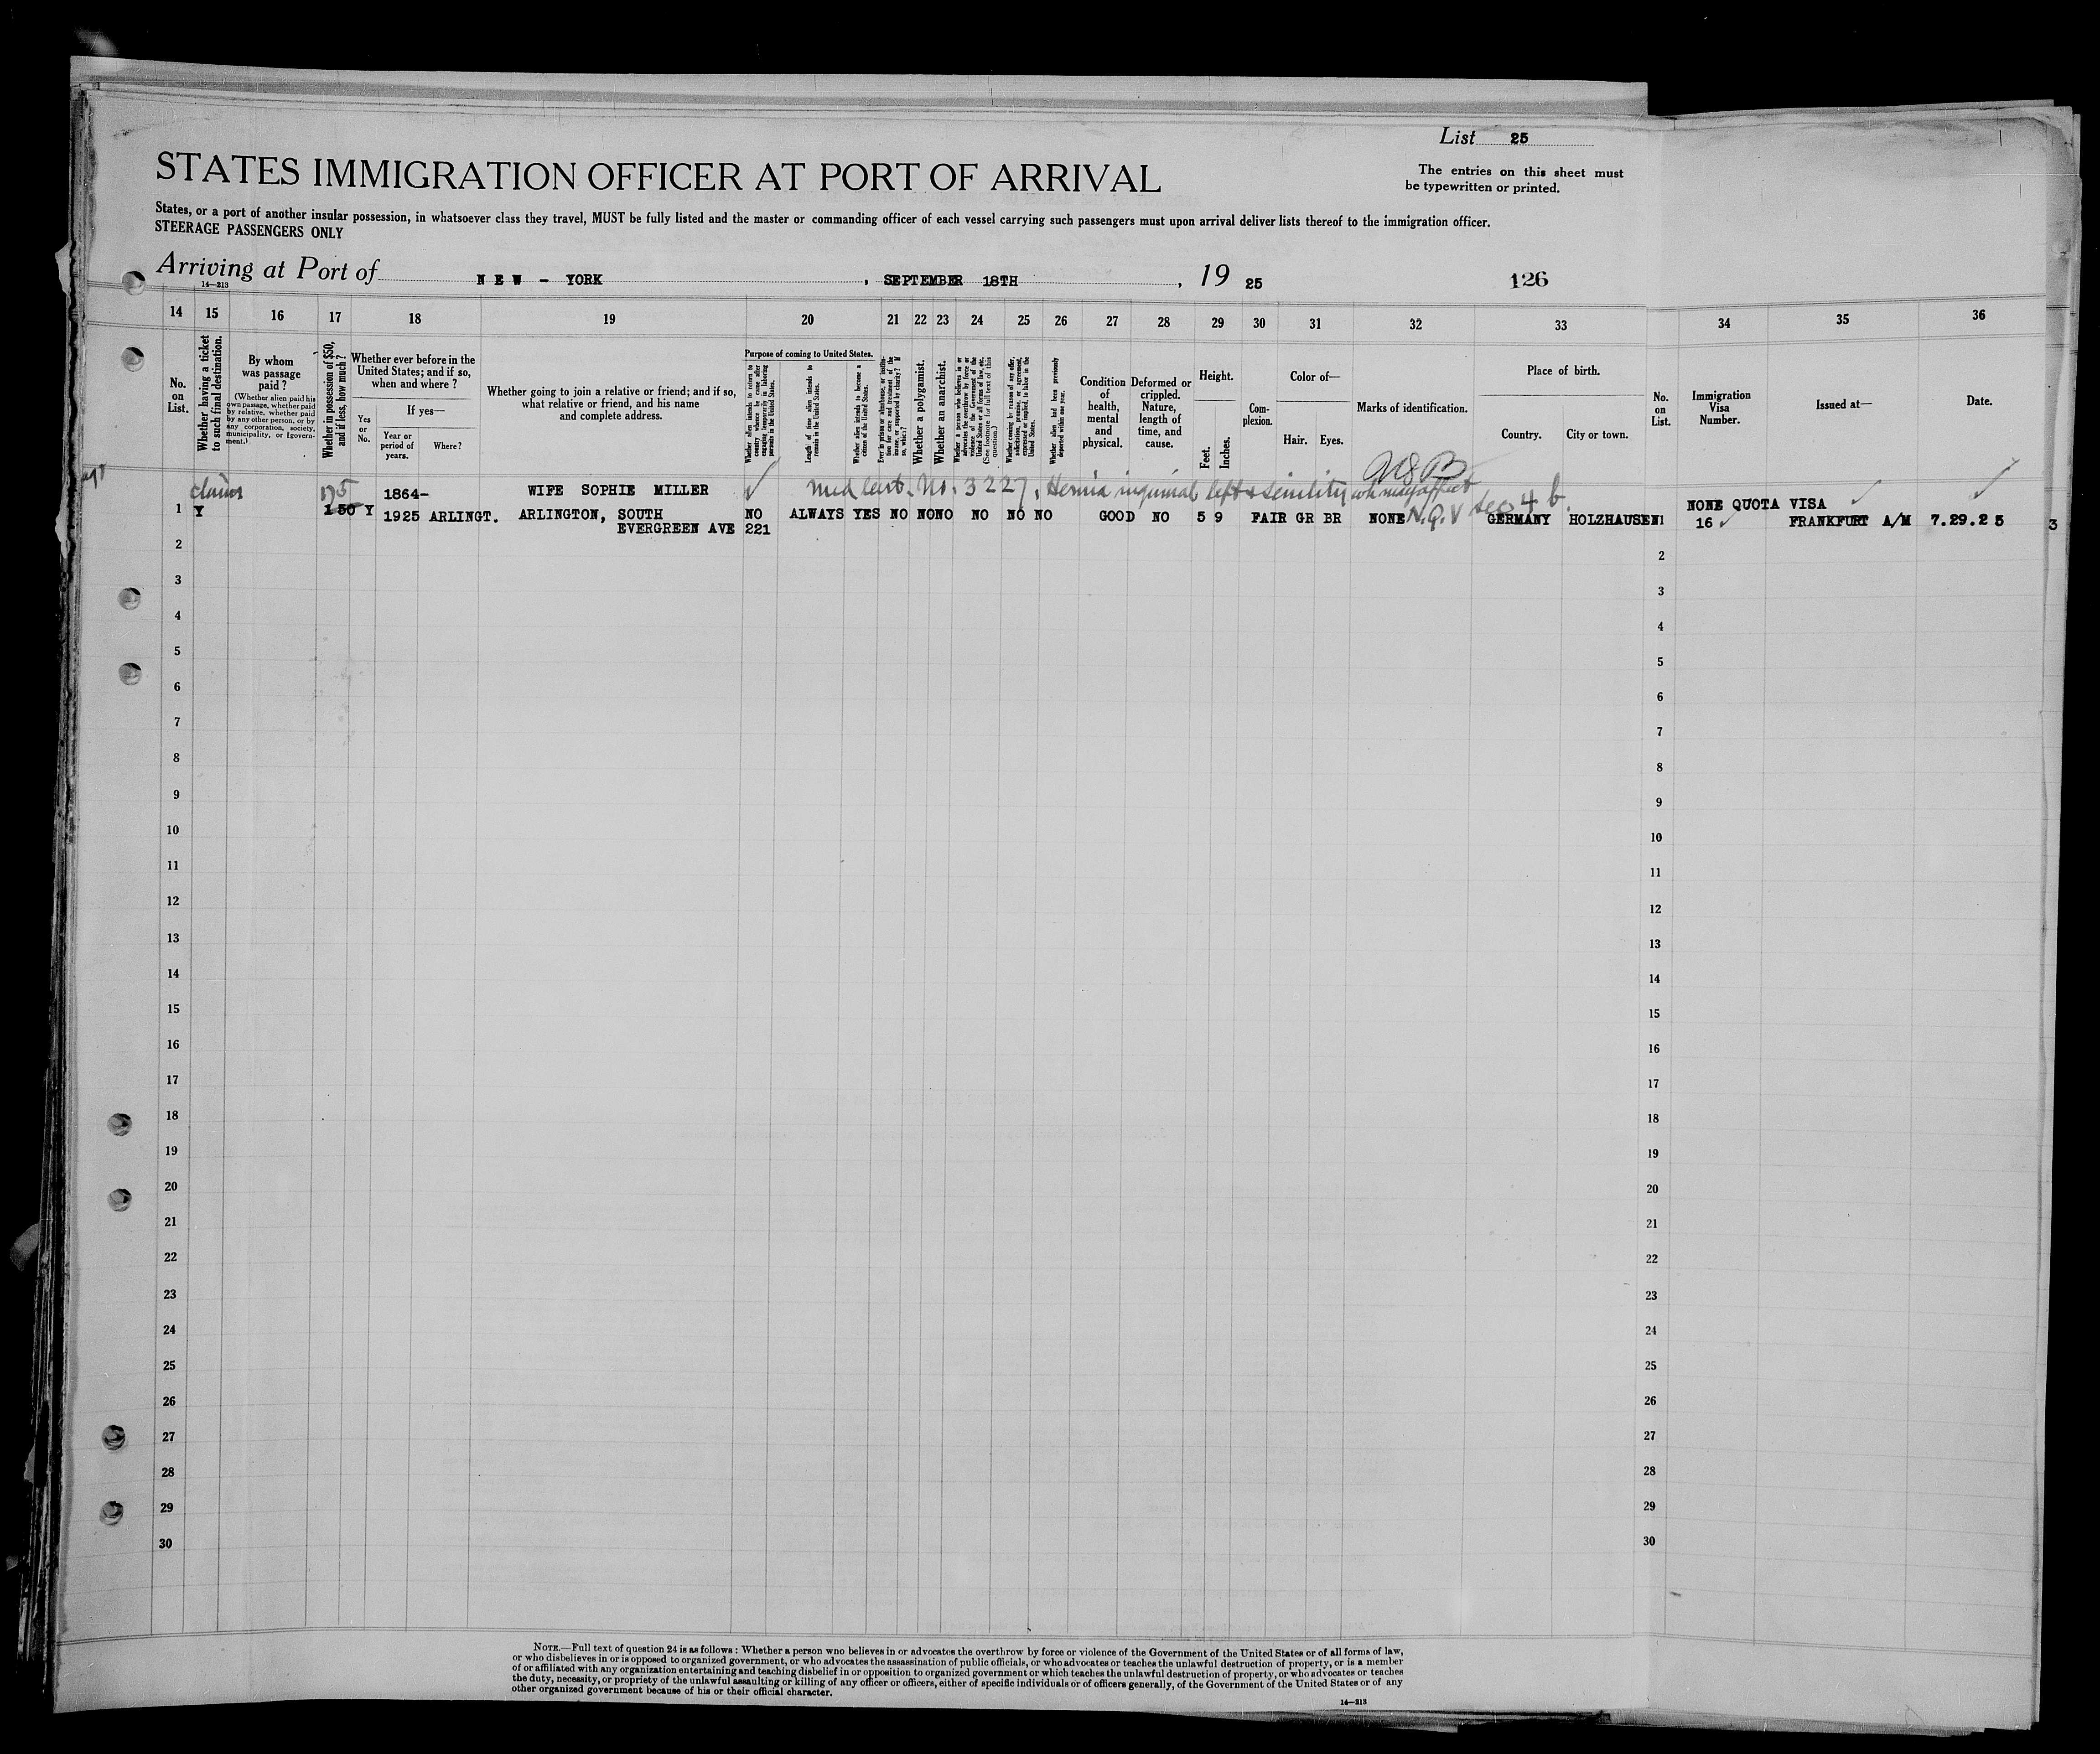 List 25
STATES IMMIGRATION OFFICER AT PORT OF ARRIVAL
The entries on this sheet must
be typewritten or printed.
States, or a port of another insular possession, in whatsoever class they travel, MUST be fully listed and the master or commanding officer of each vessel carrying such passengers must upon arrival deliver lists thereof to the immigration officer.
STEERAGE PASSENGERS ONLY
Arriving at Port of NEW - YORK, SEPTEMBER 18TH, 19 25
126
14—213
14 15 16 17 18 19 20 21 22 23 24 25 26 27 28 29 30 31 32 33 34 35 36
No. on List.
Whether having a ticket to such final destination.
By whom was passage paid?
(Whether alien paid his own passage, whether paid by relative, whether paid by any other person, or by any corporation, society, municipality, or government.)
Whether in possession of $50, and if less, how much?
Whether ever before in the United States; and if so, when and where?
Yes or No.
If yes—
Year or period of years.
Where?
Whether going to join a relative or friend; and if so, what relative or friend, and his name and complete address.
Purpose of coming to United States.
Whether alien intends to return to country whence he came after engaging temporarily in laboring pursuits in the United States.
Length of time alien intends to remain in the United States.
Whether alien intends to become a citizen of the United States.
Ever in prison or almshouse, or institution for care and treatment of the insane, or supported by charity? If so, which?
Whether a polygamist.
Whether an anarchist.
Whether a person who believes in or advocates the overthrow by force or violence of the Government of the United States or all forms of law, etc. (See footnote for full text of this question.)
Whether coming by reason of any offer, solicitation, promise, or agreement, expressed or implied, to labor in the United States.
Whether alien had been previously deported within one year.
Condition of health, mental and physical.
Deformed or crippled. Nature, length of time, and cause.
Height.
Feet. Inches.
Complexion.
Color of—
Hair. Eyes.
Marks of identification.
Place of birth.
Country. City or town.
No. on List.
Immigration Visa Number.
Issued at—
Date.
claims 175 1864- WIFE SOPHIE MILLER med cert. No. 3227, Hernia inguinal left & senility wh may affect Sec 4 b NONE QUOTA VISA
1 Y 150 Y 1925 ARLINGT. ARLINGTON, SOUTH NO ALWAYS YES NO NO NO NO NO NO GOOD NO 5 9 FAIR GR BR NONE N.Q.V GERMANY HOLZHAUSEN 1 16 FRANKFURT A/M 7.29.25 3
EVERGREEN AVE 221
2 2
3 3
4 4
5 5
6 6
7 7
8 8
9 9
10 10
11 11
12 12
13 13
14 14
15 15
16 16
17 17
18 18
19 19
20 20
21 21
22 22
23 23
24 24
25 25
26 26
27 27
28 28
29 29
30 30
NOTE.—Full text of question 24 is as follows: Whether a person who believes in or advocates the overthrow by force or violence of the Government of the United States or of all forms of law,
or who disbelieves in or is opposed to organized government, or who advocates the assassination of public officials, or who advocates or teaches the unlawful destruction of property, or is a member
of or affiliated with any organization entertaining and teaching disbelief in or opposition to organized government or which teaches the unlawful destruction of property, or who advocates or teaches
the duty, necessity, or propriety of the unlawful assaulting or killing of any officer or officers, either of specific individuals or of officers generally, of the Government of the United States or of any
other organized government because of his or their official character.
14—213